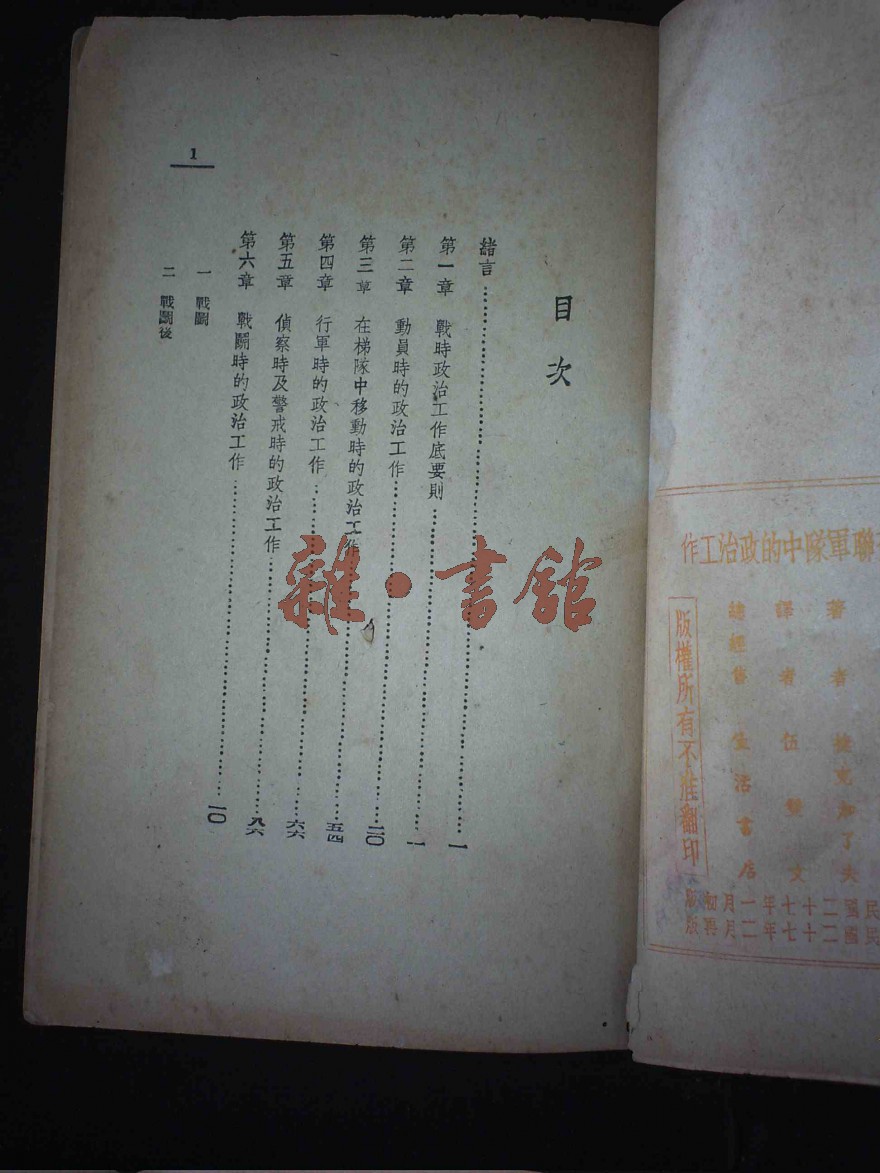 聯軍隊中的政治工作
著者
譯者 伍
總經售 生活書店
版權所有不准翻印
民國二十七年一月初版
民國二十七年二月再版
目次
緒言……一
第一章 戰時政治工作底要則……一
第二章 動員時的政治工作……二〇
第三章 在梯隊中移動時的政治工作……五四
第四章 行軍時的政治工作……六六
第五章 偵察時及警戒時的政治工作……
第六章 戰鬭時的政治工作……
一 戰鬭
二 戰鬭後
1
雜·書館